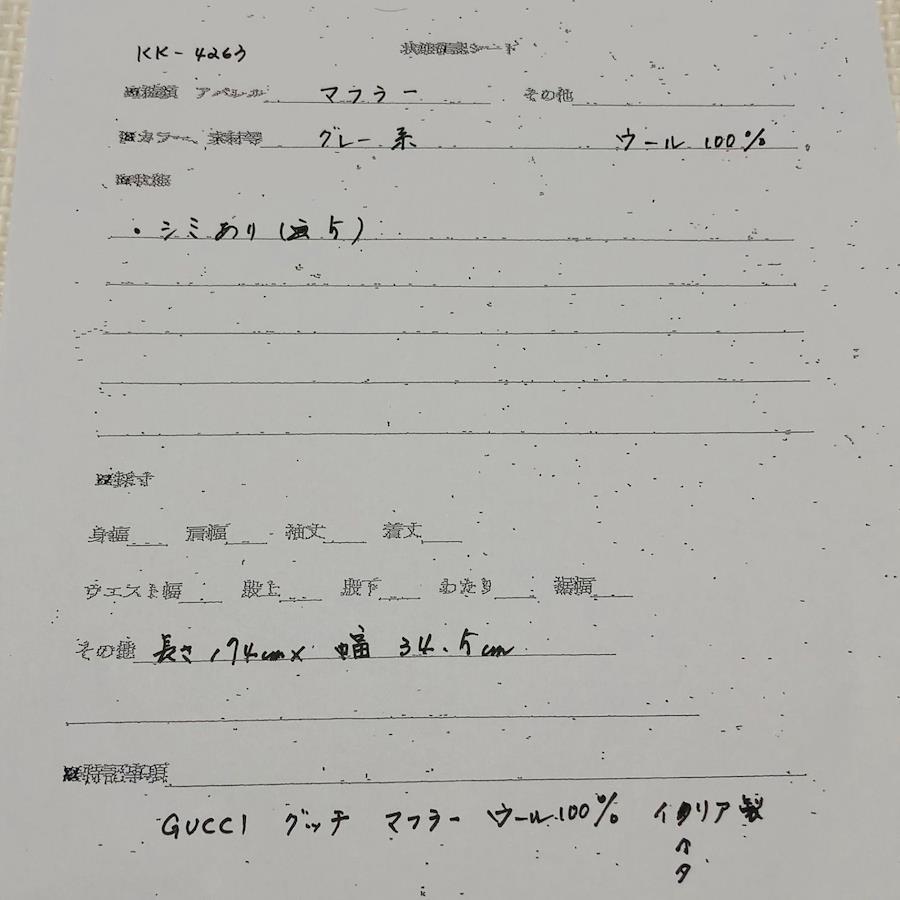 KK-4263 状態確認シート
※種類 アパレル マフラー その他
※カラー、素材等 グレー系 ウール 100%
※状態
・シミあり(画5)
※採寸
身幅 肩幅 袖丈 着丈
ウエスト幅 股上 股下 わたり 裾幅
その他 長さ174cm× 幅 34.5cm
※特記事項
GUCCI グッチ マフラー ウール100% イタリア製
↑
タ